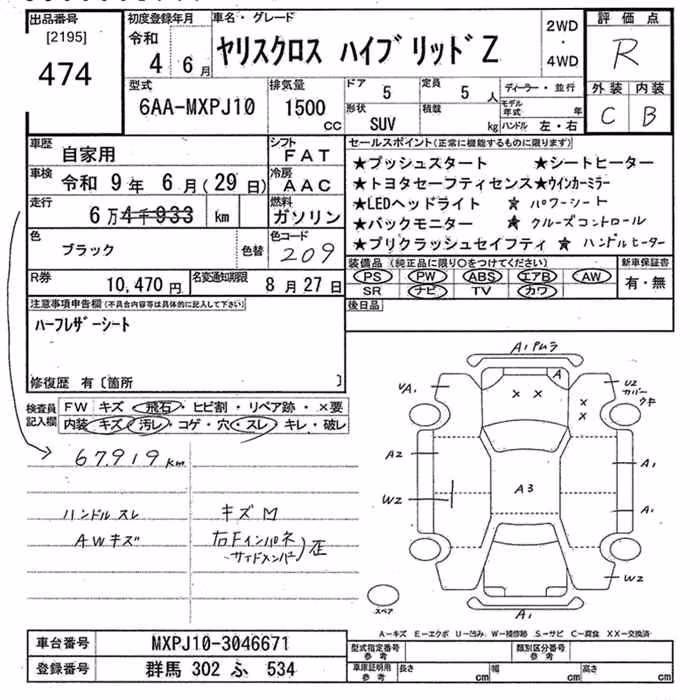 出品番号
[2195]
474
初度登録年月
令和
4年 6月
車名・グレード
ヤリスクロス ハイブリッドZ
2WD
・
4WD
評価点
R
外装 内装
C B
型式
6AA-MXPJ10
排気量
1500
cc
ドア
5
定員
5 人
形状
SUV
積載
kg
ディーラー・並行
モデル年式 年
ハンドル 左・右
車歴
自家用
シフト
FAT
車検
令和 9年 6月(29日)
冷房
AAC
走行
6万4千933 km
燃料
ガソリン
色
ブラック
色替
色コード
209
R券
10,470円
名変通知期限
8月27日
セールスポイント(正常に機能するものに限ります)
★プッシュスタート ★シートヒーター
★トヨタセーフティセンス★ウインカーミラー
★LEDヘッドライト ☆パワーシート
★バックモニター ★クルーズコントロール
★プリクラッシュセイフティ ★ハンドルヒーター
装備品(純正品に限り○をつけてください)
PS PW ABS エアB AW
SR ナビ TV カワ
新車保証書
有・無
後日品
注意事項申告欄(不具合内容等は具体的に記入して下さい)
ハーフレザーシート
修復歴 有〔箇所 〕
検査員
記入欄
FW キズ・飛石・ヒビ割・リペア跡・×要
内装 キズ・汚レ・コゲ・穴・スレ・キレ・破レ
67,919km
ハンドル スレ
AWキズ
キズM
右Fインパネ
サイドメンバー)歪
A1 ムラ
A
UA1
UZ
カバー
ウキ
× ×
×
×
A2
A3
A1
W2
A1
W2
A1
スペア
A−キズ E−エクボ U−凹み W−補修跡 S−サビ C−腐食 XX−交換済
車台番号
MXPJ10-3046671
登録番号
群馬 302 ふ 534
型式指定番号
参考
類別区分番号
参考
車庫証明用
参考
長さ cm
幅 cm
高さ cm